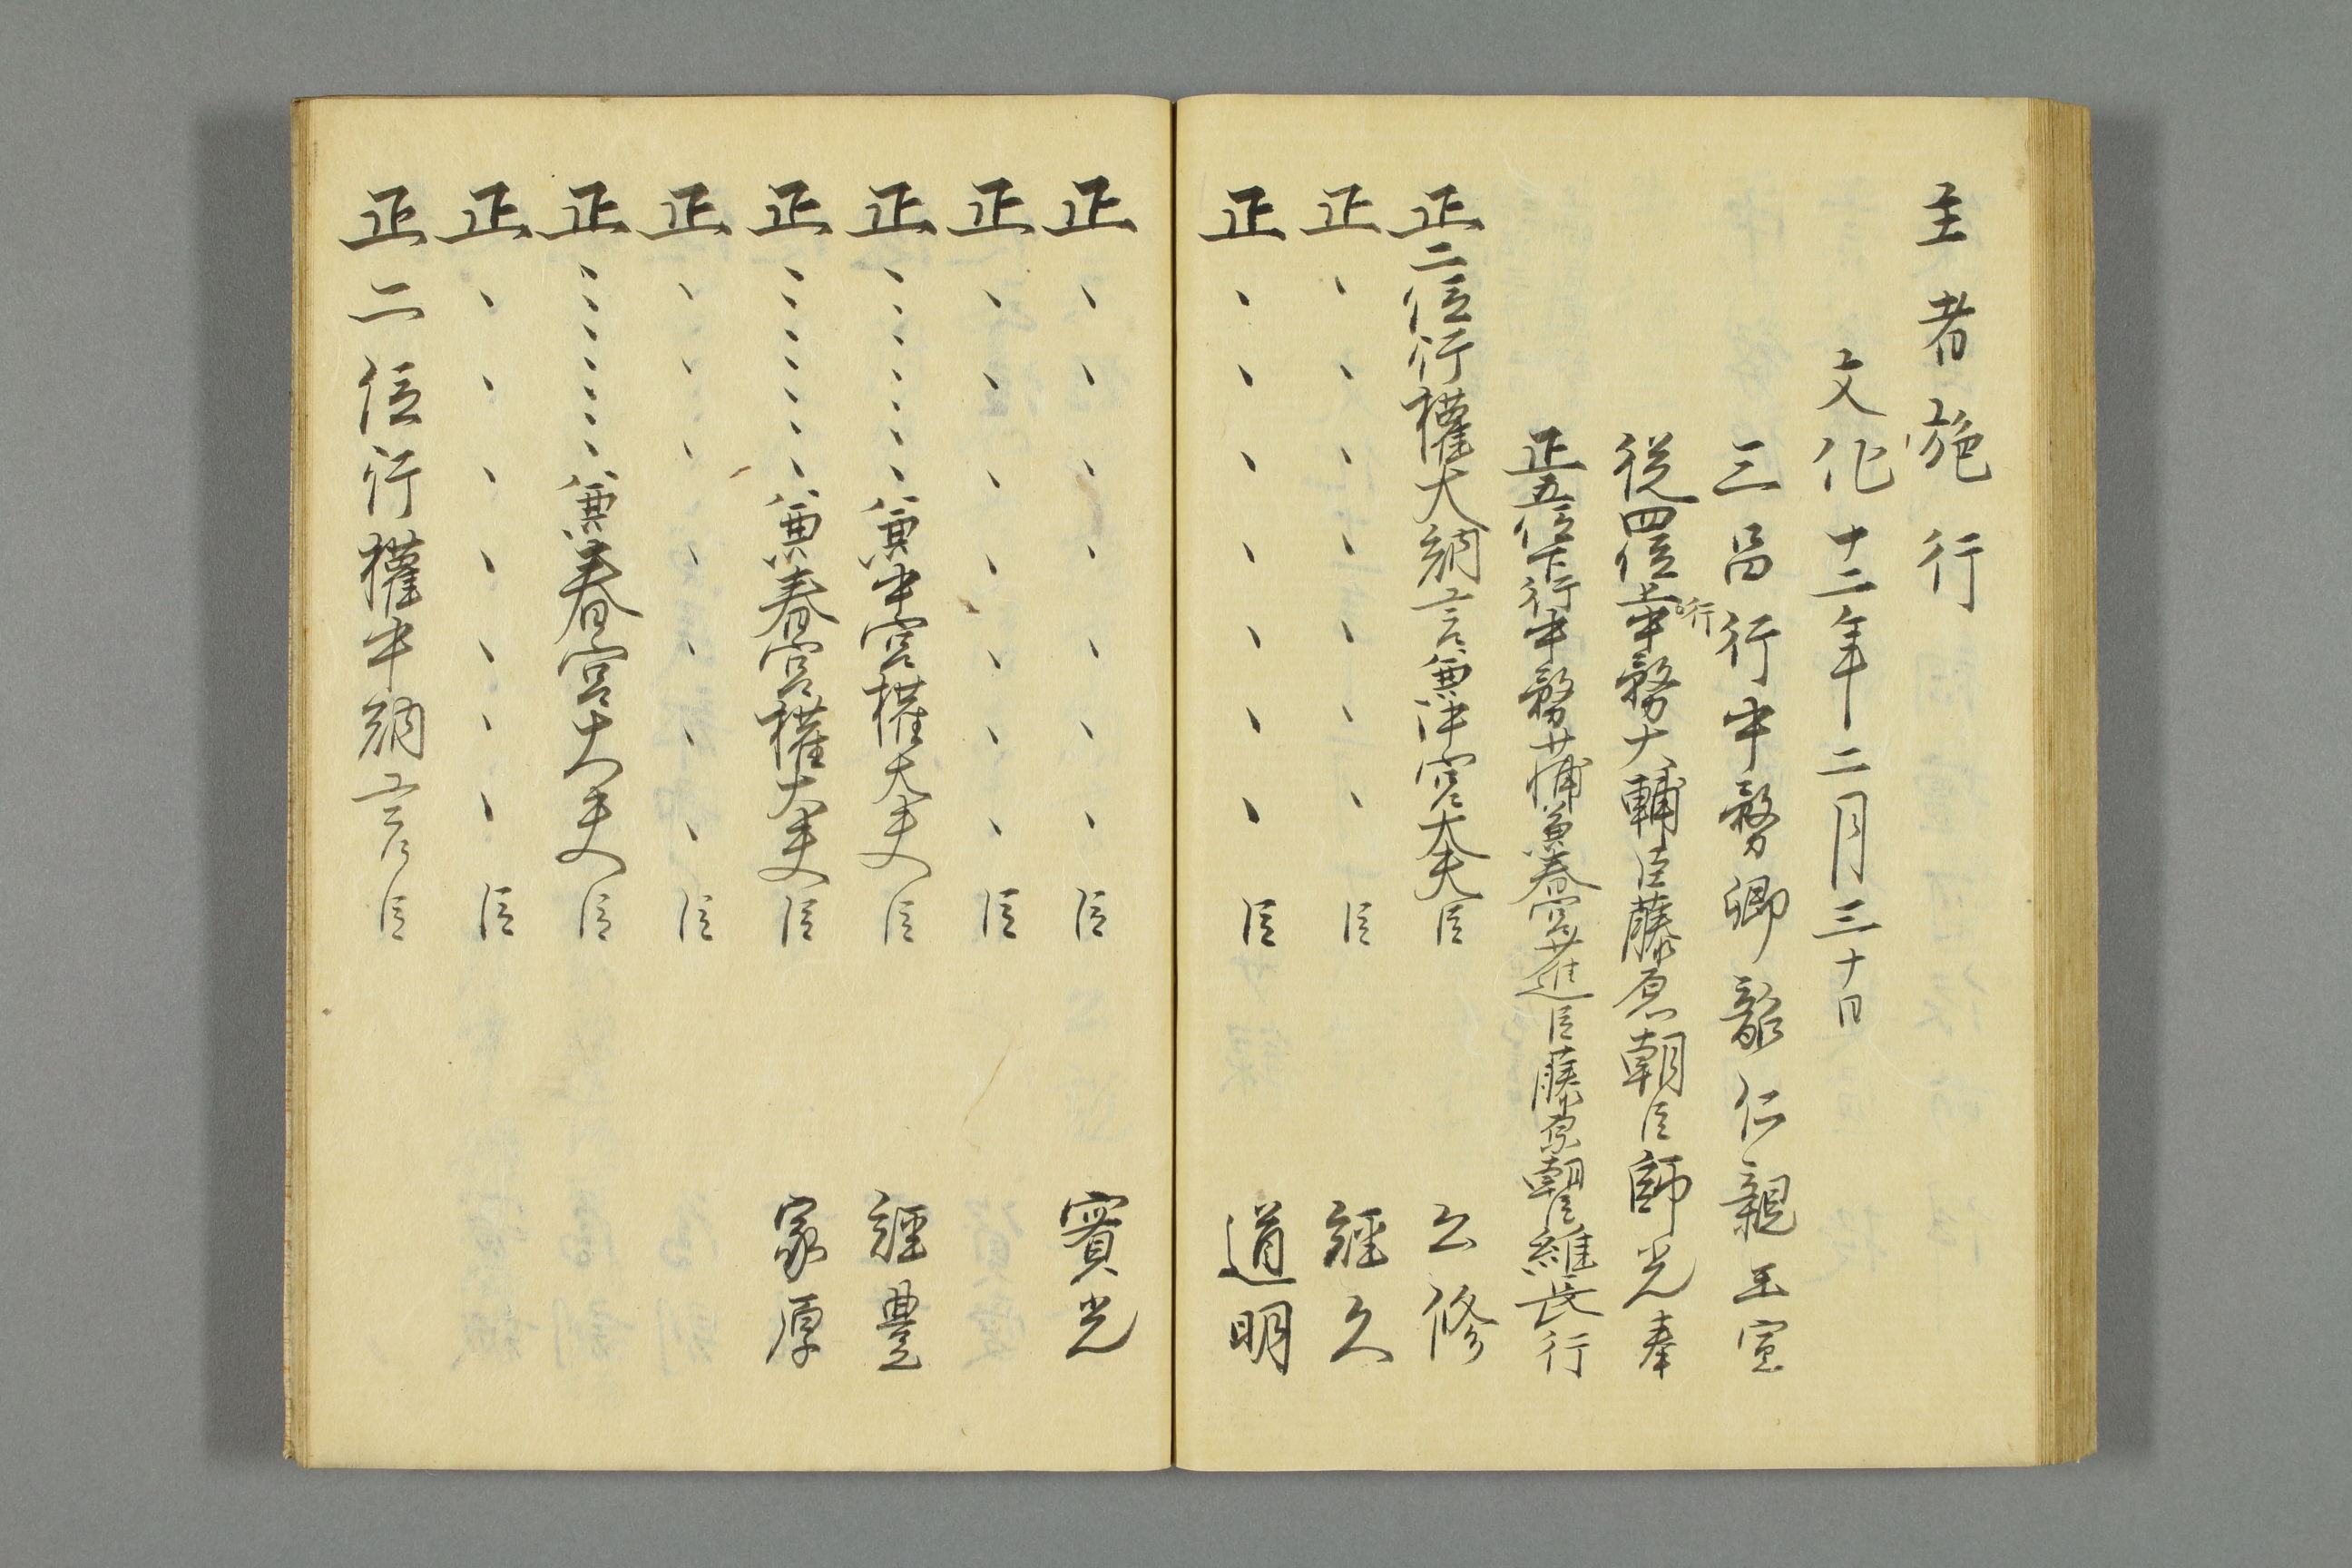 主者施行
文化十二年二月三十日
三品行中務卿韶仁親王宣
従四位上行中務大輔臣藤原朝臣師光奉
正五位下行中務少輔兼春宮少進臣藤原朝臣維長行
正二位行權大納言兼中宮大夫臣 公修
正、、、、、、、臣 經久
正、、、、、、、臣 道明
正、、、、、、、臣 實光
正、、、、、、、臣
正、、、、、、、兼中宮權大夫臣 經豊
正、、、、、、、兼春宮權大夫臣 家厚
正、、、、、、、臣
正、、、、、、、兼春宮大夫臣
正、、、、、、、臣
正二位行權中納言臣